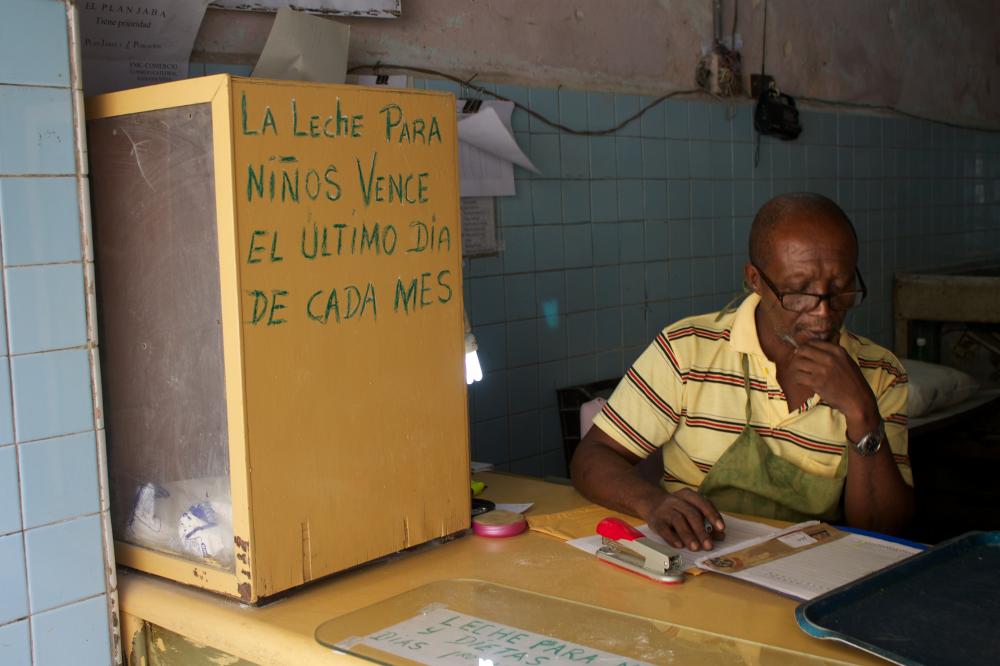 EL PLANJABA
Tiene prioridad
PLAN JABA Y
LA LECHE PARA
NIÑOS VENCE
EL ÚLTIMO DÍA
DE CADA MES
LECHE PARA
Y DIETAS
DÍAS